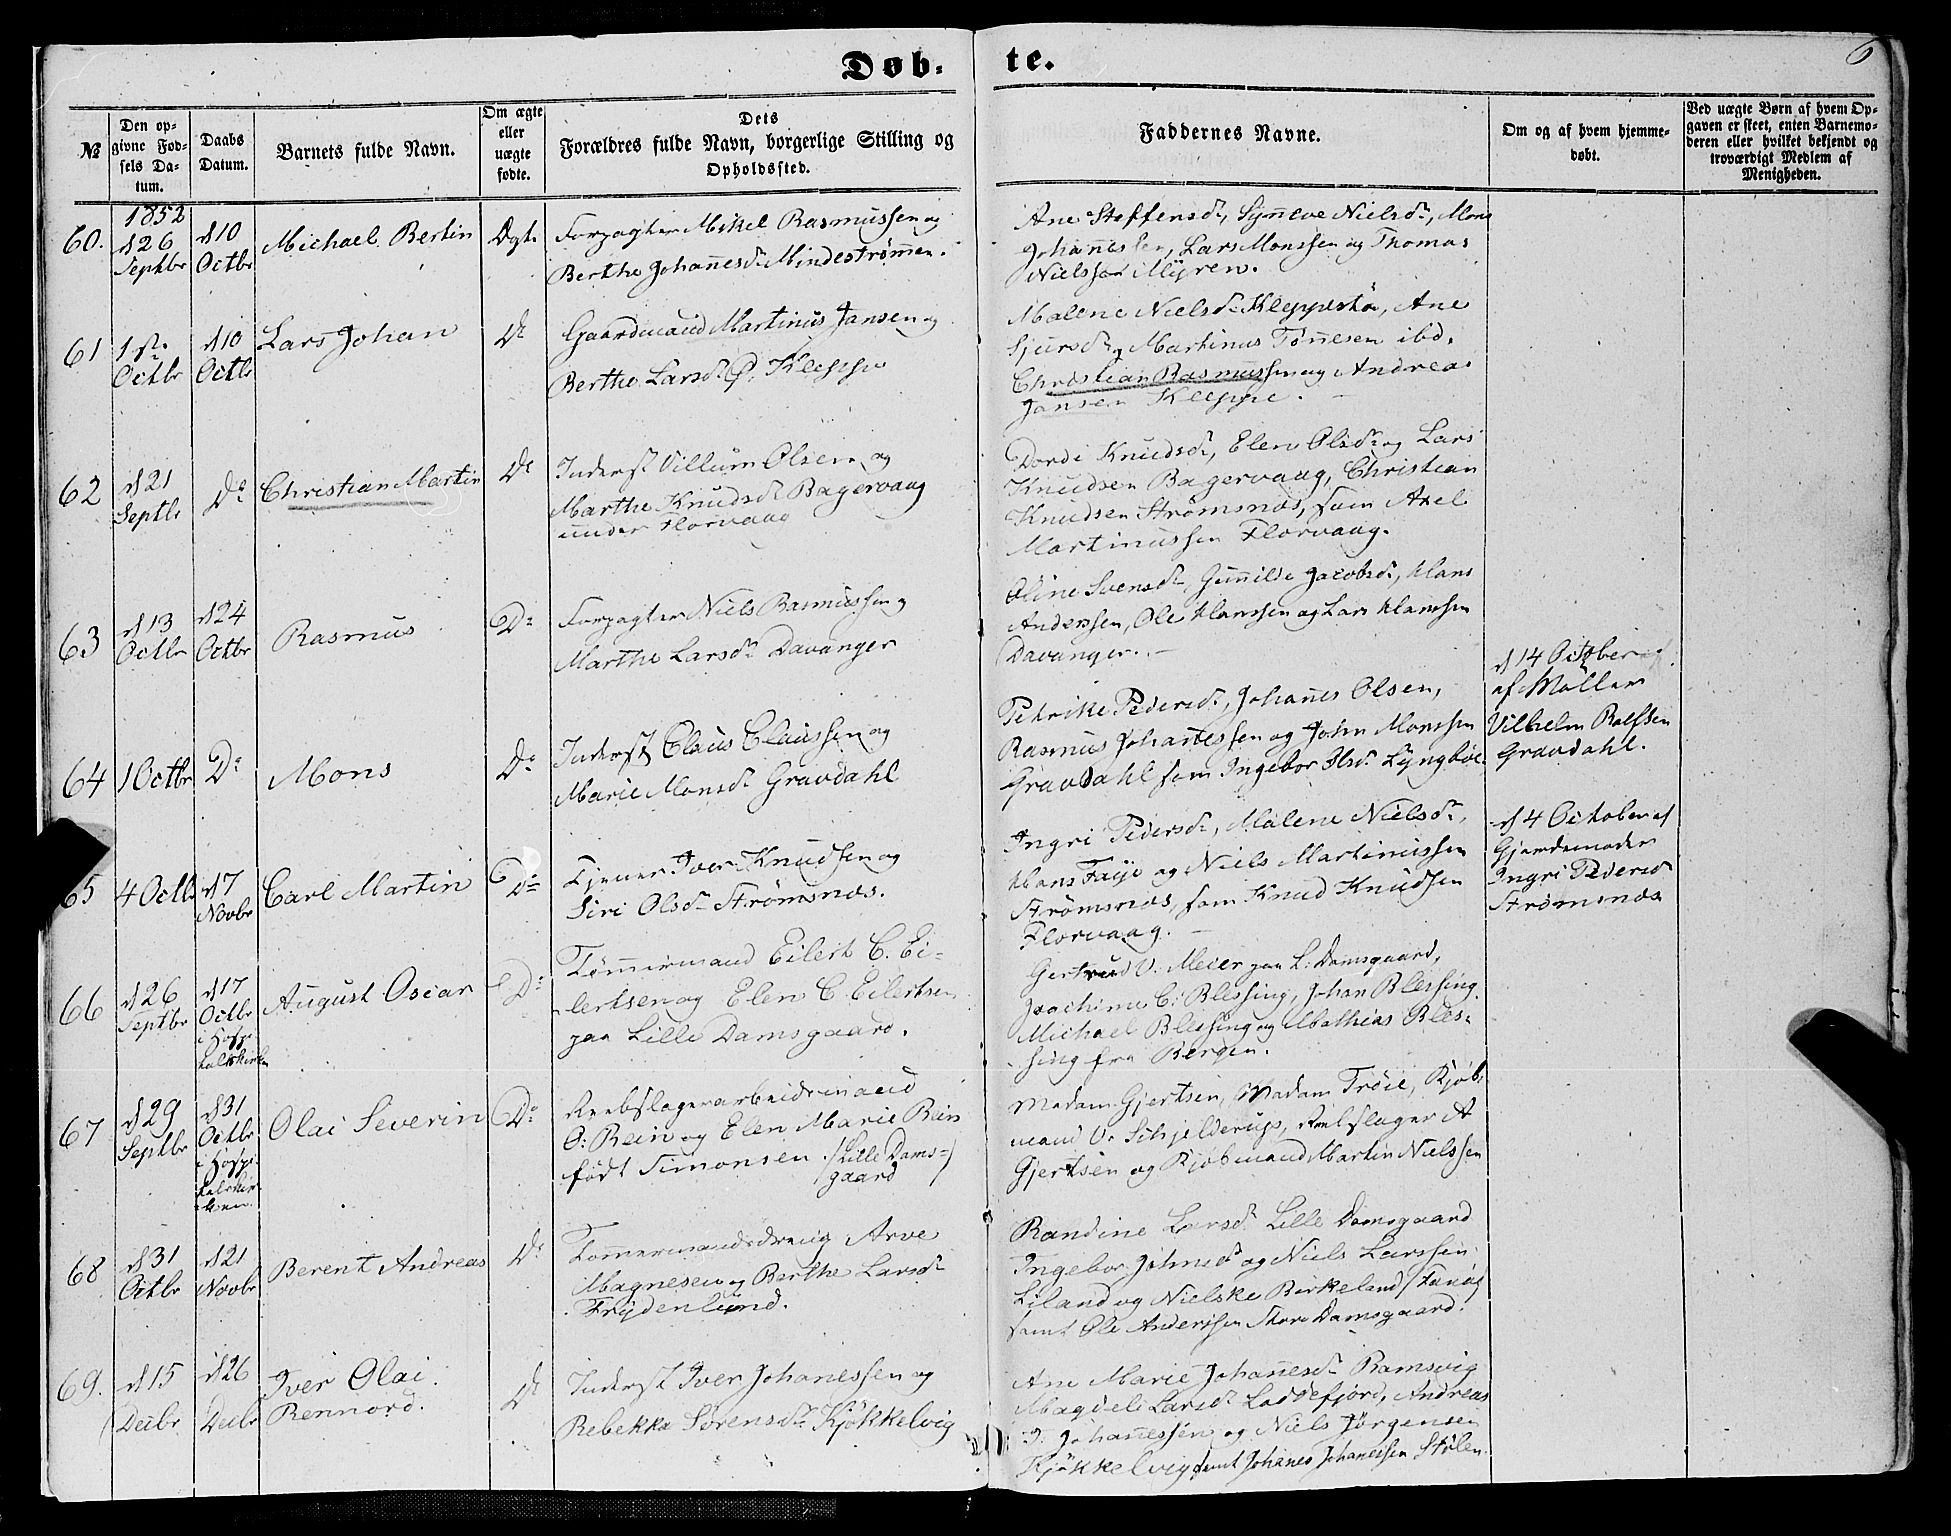 Døb-
te.
6
№
Den op-
givne Fød-
sels Da-
tum.
Daabs
Datum.
Barnets fulde Navn.
Om ægte
eller
uægte
fødte.
Dets
Forældres fulde Navn, borgerlige Stilling og
Opholdssted.
Faddernes Navne.
Om og af hvem hjemme-
døbt.
Ved uægte Børn af hvem Op-
gaven er skeet, enten Barnemo-
deren eller hvilket bekjendt og
troværdigt Medlem af
Menigheden.
60.
1852
d 26
Septbr
d 10
Octbr
Michael Bertin
Ægt.
Forpagter Mikel Rasmussen og
Berthe Johañesd. Mindeströmmen.
Ane Steffensd., Syñeve Nielsd., Mons
Johañessen, Lars Monssen og Thomas
Nielssen Myren.
61
1ste
Octbr
d 10
Octbr
Lars Johan
Do
Gaardmand Martinus Jansen og
Berthe Larsd. Kleppe
Malene Nielsd. Kleppestø, Ane
Sjursd. Martinus Töñesen ibd.
Christian Rasmussen og Andreas
Jansen Kleppe.
62
d 21
Septbr
Do
Christian Martin
Do
Inderst Villum Olsen og
Marthe Knudsd. Bagervaag
under Florvaag
Dordi Knudsd., Elen Olsd. og Lars
Knudsen Bagervaag, Christian
Knudsen Strømsnæs, sam Axel
Martinussen Florvaag.
63
d 13
Octbr
d 24
Octbr
Rasmus
Do
Forpagter Niels Rasmussen og
Marthe Larsd. Davanger
Oline Svensd., Guñilde Jacobsd., Hans
Anderssen, Ole Hanssen og Lars Hanssen
Davanger.
64
1 Octbr
Do
Mons
Do
Inderst Claus Claussen og
Marie Monsd. Gravdahl
Petrike Pedersd., Johañes Olsen,
Rasmus Johañessen og John Monssen
Gravdahl sam Ingebor Olsd. Lyngböe.
d 14 October
af Møller
Vilhelm Rolfsen
Gravdahl.
65
4 Octb.
d 7
Novbr
Carl Martin
Do
Tjener Iver Knudsen og
Siri Olsd. Strømsnæs.
Ingri Pedersd., Malene Nielsd.,
Hans Faye og Niels Martinussen
Strømsnæs, sam Knud Knudsen
Florvaag.
d 4 October af
Gjordemoder
Ingri Pedersd
Strømsnæs
66
d 26
Septbr
d 17
Octbr
i Hospi
talskirken
August Oscar
Do
Tømmermand Eilert C. Ei-
lertsen og Elen C. Eilertsen
paa Lille Damsgaard.
Gertrud V. Meier paa L. Damsgaard,
Joachime C. Blessing, Johan Blessing
Michael Blessing og Mathias Bles-
sing fra Bergen.
67
d 29
Septbr
d 31
Octbr
i Hospi
talskir-
ken.
Olai Severin
Do
Reebslagerarbeidsmand
O. Rein og Elen Marie Rein
født Simonsen. (Lille Dams-
gaard)
Madam Gjertsen, Madam Tröie, Kjøb-
mand V. Schjelderup, Reebslager A
Gjertsen og Kjøbmand Martin Nielssen
68
d 31
Octbr
d 21
Novbr
Berent Andreas
Do
Tømermandsdreng Arve
Magnesen og Berthe Larsd.
Frydenlund.
Randine Larsd. Lille Damsgaard
Ingebor Johnsd. og Niels Larssen
Liland og Nielske Birkeland (Fanø)
samt Ole Anderssen Store Damsgaard.
69.
d 15
Decbr
d 26
Decbr
Iver Olai
Rennord.
Do
Inderst Iver Johanessen og
Rebekka Sorensd. Kjøkkelvig
Ane Marie Johañesd. Ramsvig
Magdeli Larsd. Loddefjord, Andreas
J. Johañessen og Niels Jörgensen
Kjøkkelvig samt Johanes Johanessen Stølen.